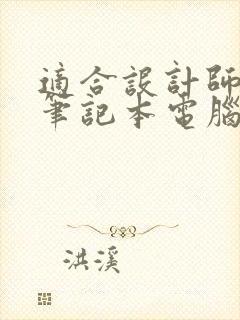 適合設計師
筆記本電腦
洪溪